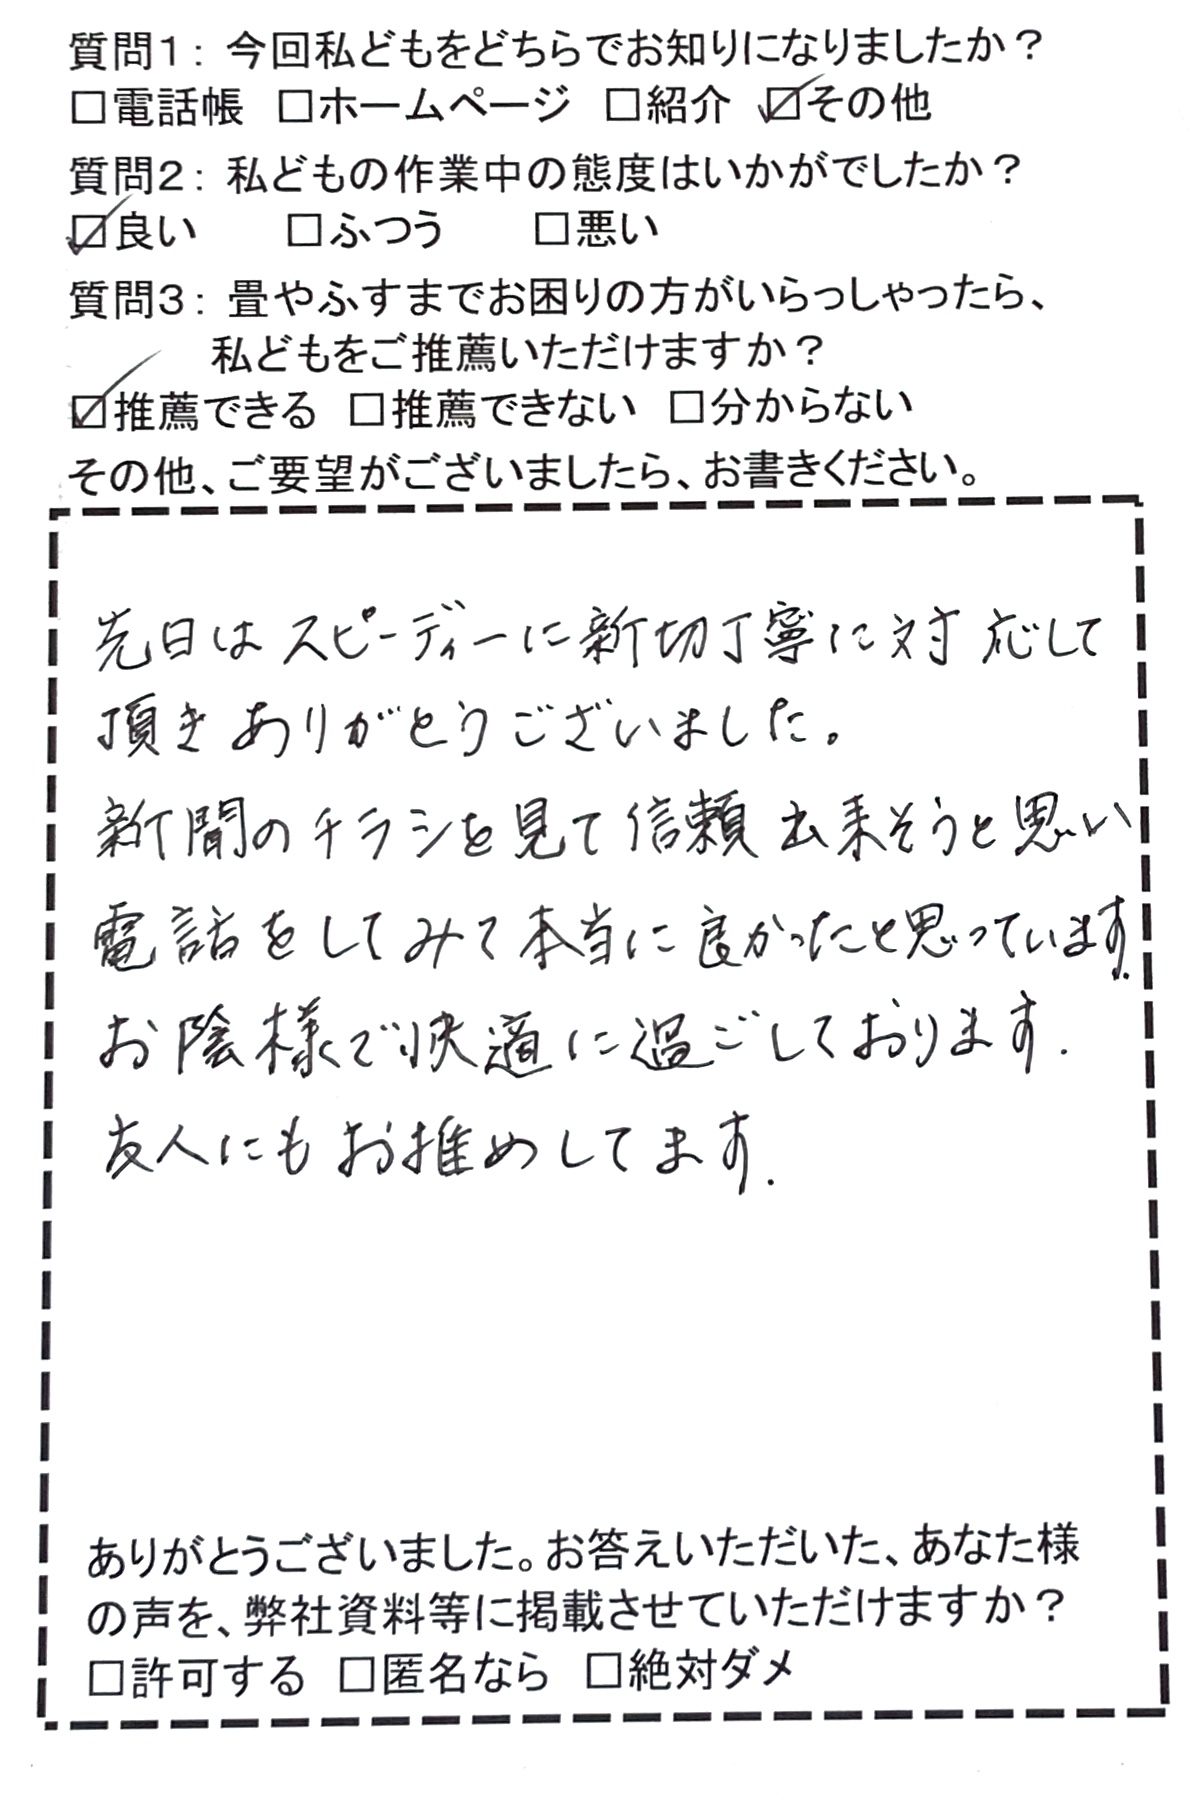 質問1：今回私どもをどちらでお知りになりましたか？
□電話帳 □ホームページ □紹介 ☑その他
質問2：私どもの作業中の態度はいかがでしたか？
☑良い □ふつう □悪い
質問3：畳やふすまでお困りの方がいらっしゃったら、
私どもをご推薦いただけますか？
☑推薦できる □推薦できない □分からない
その他、ご要望がございましたら、お書きください。
先日はスピーディーに新切丁寧に対応して
頂きありがとうございました。
新聞のチラシを見て信頼出来そうと思い
電話をしてみて本当に良かったと思っています.
お陰様で快適に過ごしております.
友人にもお推めしてます.
ありがとうございました。お答えいただいた、あなた様
の声を、弊社資料等に掲載させていただけますか？
□許可する □匿名なら □絶対ダメ